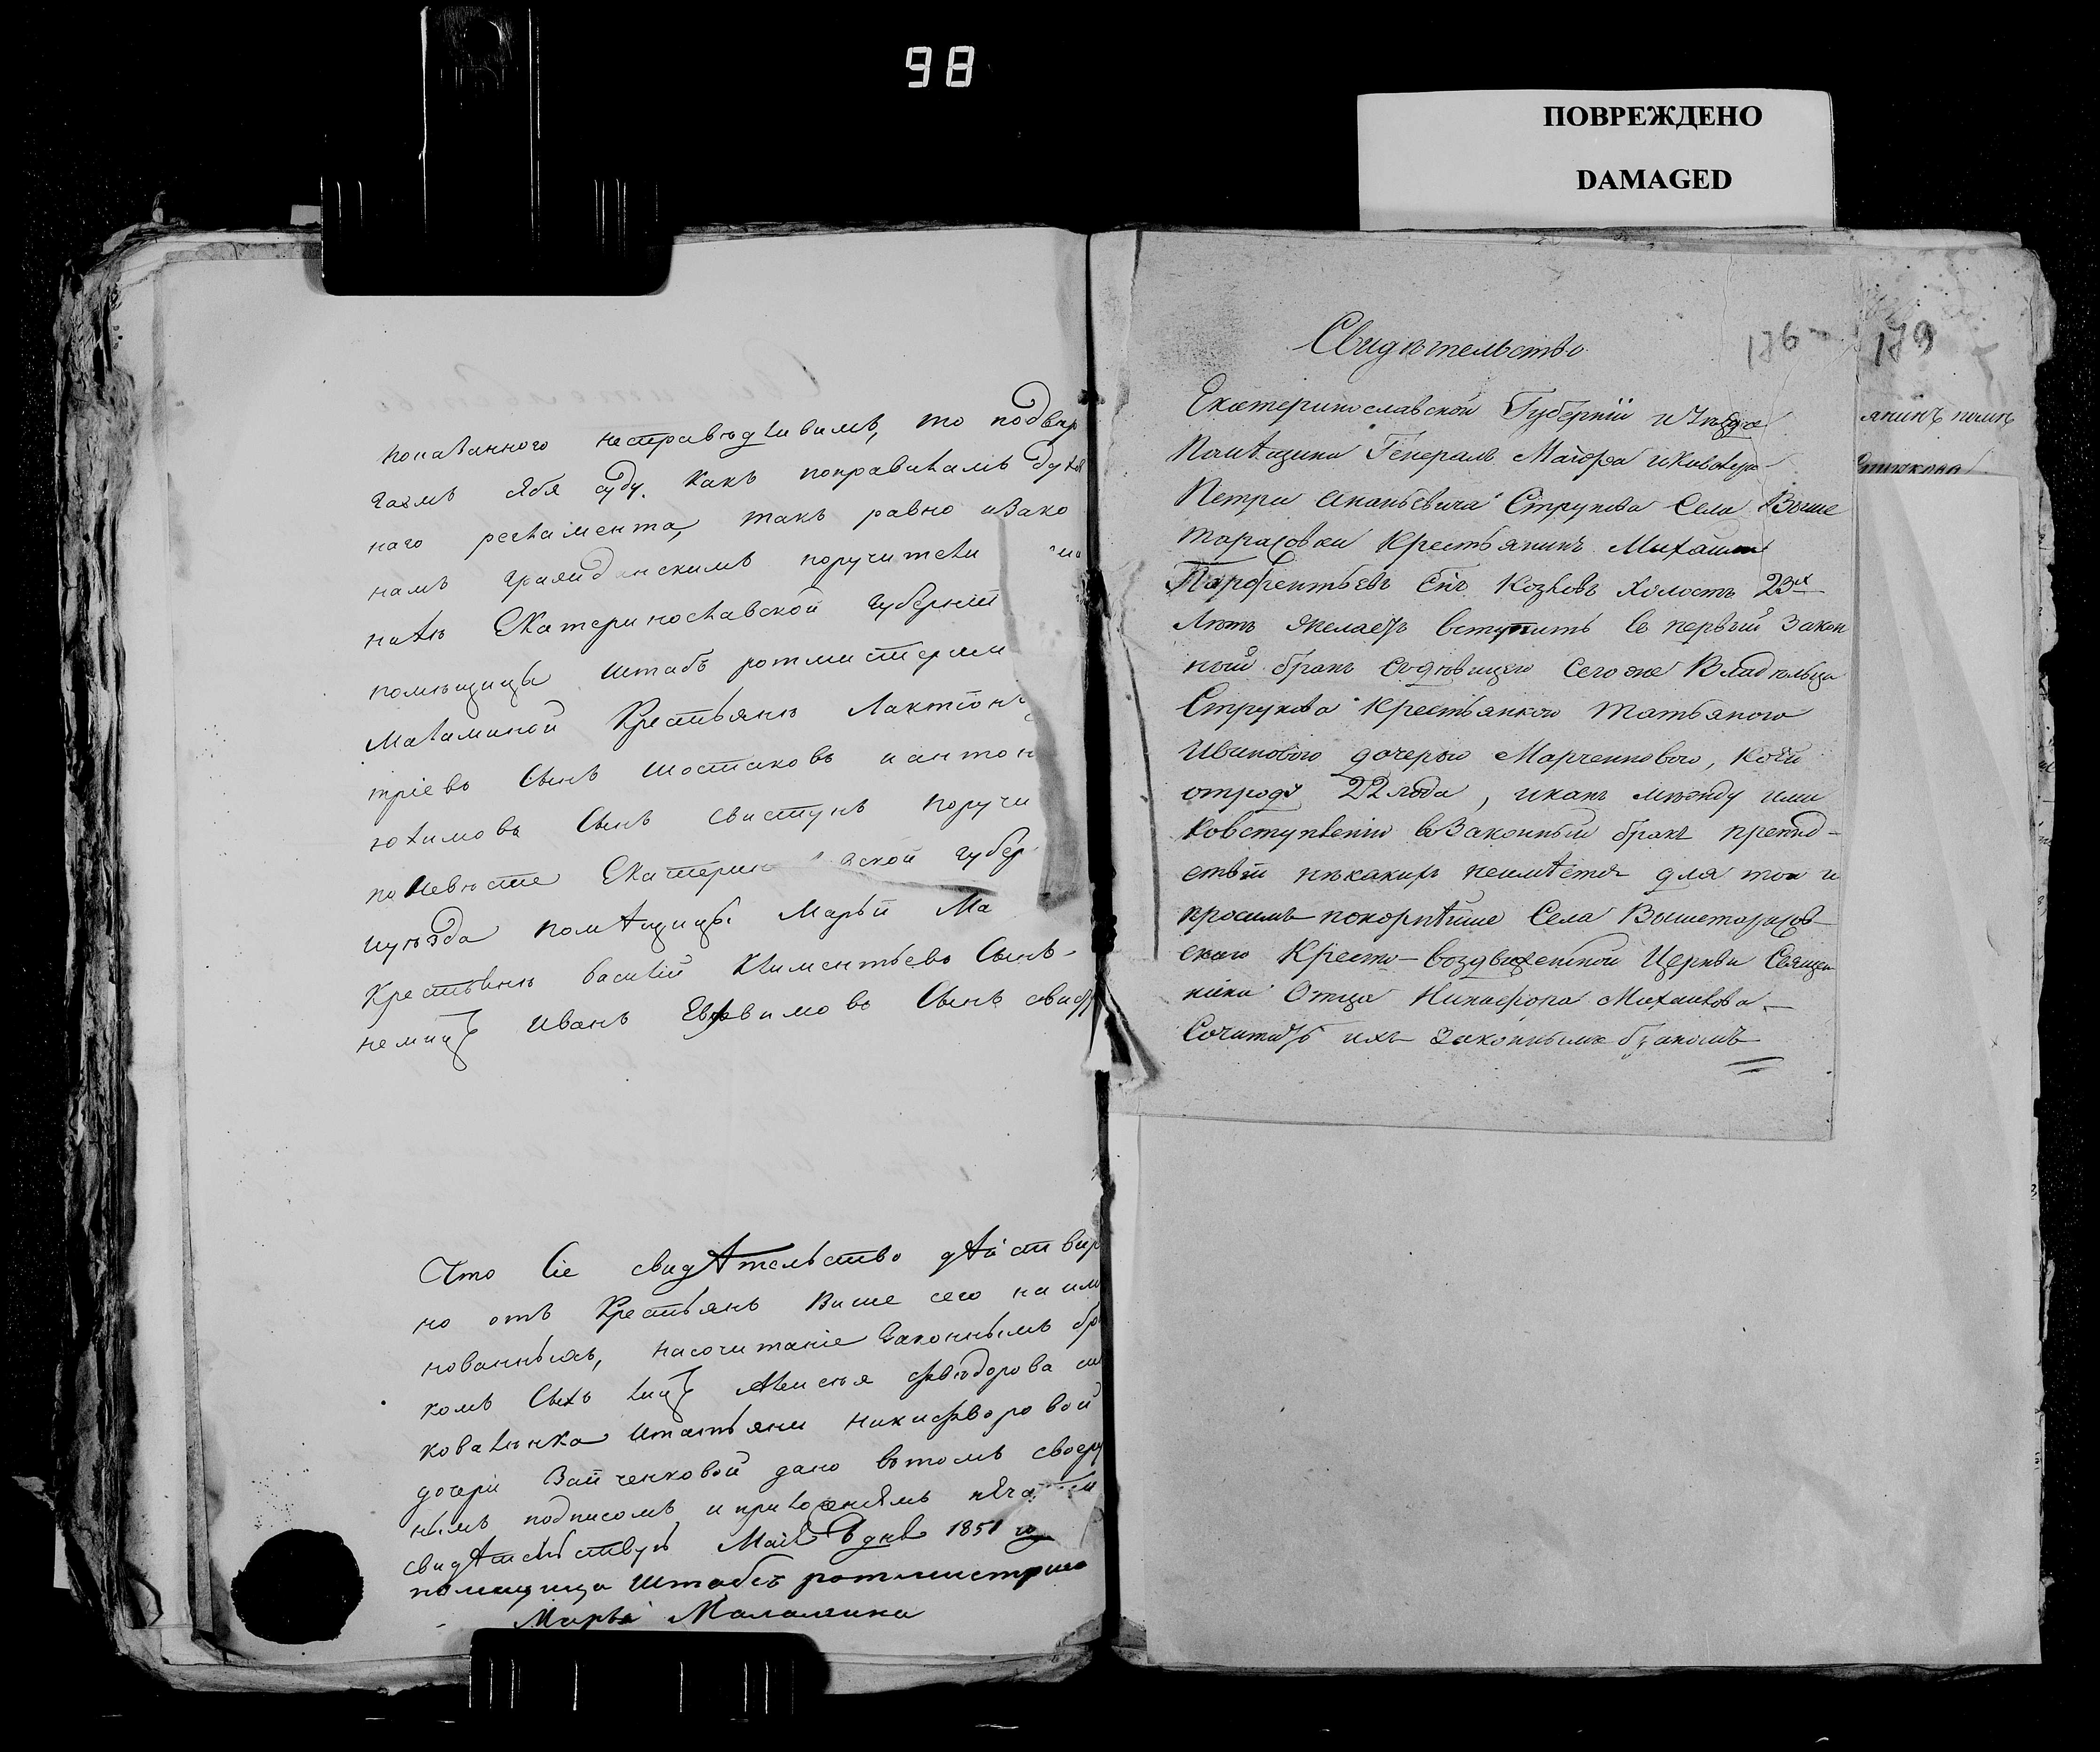 98
ПОВРЕЖДЕНО
DAMAGED
показанного несправѣдливымъ, то подвер
гаемъ себя суду. Какъ поправиламъ духов
наго регламента, такъ равно изако
намъ гражданскимъ поручители
Екатеринославской губерній
помѣщицы Штабъ ротмистерши
Маламиной Крестьянъ Лактіон
тріевъ Сынъ Шостаковъ иантон
юхимовъ Сынъ Свистунъ поручи
поневѣсте Екатерин ской губер
иуѣзда помѣщицы Марьи Ма
Крестьянъ Василій Климентьевъ Сынъ
Иванъ Евфимовъ Сынъ
Что Сіе свидѣтельство дѣйствир
но отъ Крестьянъ Више сего наим
нованныхъ, насочитаніе Законнымъ бра
комъ Сихъ лицъ Алексѣя Фвѣдорова
коваленка Итатьяни Никифворовой
дочери Зайченковой дано вътомъ своеру
нымъ подписомъ иприложеніемъ пѣчати
свидѣтельствую Маія 6 дня 1851 го
помещица Штабсъ ротмистрша
Марья Маламина
Свидѣтельство
176 179
Екатеринославской Губерніи иУѣзда
Помѣщика Генералъ Маіора иКовалера
Петра Ананьевича Струкова Села Више
тарасовки Крестьянинъ Михаилъ
Парфентьевъ Сынъ Козловъ холостъ 23х
Лѣтъ желаетъ вступить въ первый Закон
ный бракъ Съдѣвицею Сего же Владѣльца
Струкова Крестьянкою Татьяною
Ивановою дочерью Марченковою, коей
отроду 22 года, икакъ между ими
Ковступленію въЗаконный бракъ препяд-
ствій никакихъ неимѣется для того и
просимъ покорнѣйше Села Вышетарасов
скаго Кресто-Воздвиженской Церкви Священ
ника Отца Никифора Михайлова
Сочитать ихъ Законнымъ бракомъ